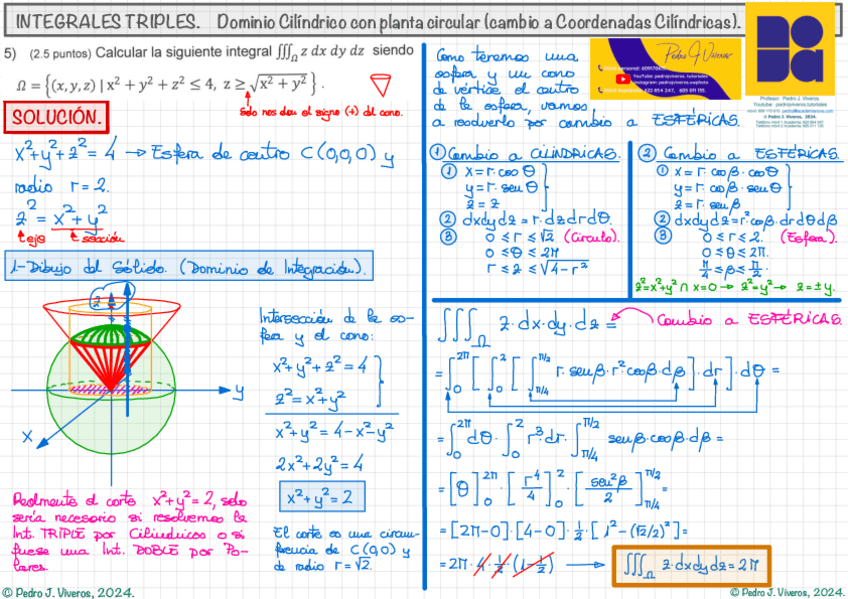 INTEGRALES TRIPLES. Dominio Cilíndrico con planta circular (cambio a Coordenadas Cilíndricas).
5) (2.5 puntos) Calcular la siguiente integral ∭_Ω z dx dy dz siendo
Ω = {(x, y, z) | x² + y² + z² ≤ 4, z ≥ √(x² + y²)}.
Solo nos dan el signo (+) del cono.
SOLUCIÓN.
x²+y²+z² = 4 → Esfera de centro C(0,0,0) y
radio r = 2.
z² = x²+y²
eje sección
1-Dibujo del Sólido. (Dominio de Integración).
z
y
x
Intersección de la es-
fera y el cono:
x²+y²+z² = 4
z² = x²+y²
x²+y² = 4-x²-y²
2x²+2y² = 4
x²+y² = 2
El corte es una circun-
ferencia de C(0,0) y
de radio r = √2.
Realmente el corte x²+y² = 2, solo
sería necesario si resolvemos la
Int. TRIPLE por Cilíndricas o si
fuese una Int. DOBLE por Po-
lares.
Como tenemos una
esfera y un cono
de vértice el centro
de la esfera, vamos
a resolverlo por cambio a ESFÉRICAS.
Pedro J Viveros
YouTube: pedrojviveros.tutoriales
Profesor: Pedro J. Viveros.
© Pedro J. Viveros, 2024.
① Cambio a CILÍNDRICAS.
① x = r·cosθ
y = r·senθ
z = z
② dxdydz = r·dzdrdθ.
③ 0 ≤ r ≤ √2 (Círculo).
0 ≤ θ ≤ 2π
r ≤ z ≤ √(4-r²)
② Cambio a ESFÉRICAS.
① x = r·cosβ·cosθ
y = r·cosβ·senθ
z = r·senβ
② dxdydz = r²cosβ·drdθdβ
③ 0 ≤ r ≤ 2. (Esfera).
0 ≤ θ ≤ 2π.
π/4 ≤ β ≤ π/2.
z²=x²+y² ∩ x=0 → z²=y² → z=±y.
∭_Ω z·dx·dy·dz = Cambio a ESFÉRICAS.
= ∫₀^2π [∫₀^2 [∫_π/4^π/2 r·senβ·r²cosβ·dβ]·dr]·dθ =
= ∫₀^2π dθ · ∫₀^2 r³dr · ∫_π/4^π/2 senβ·cosβ·dβ =
= [θ]₀^2π · [r⁴/4]₀^2 · [sen²β/2]_π/4^π/2 =
= [2π-0]·[4-0]·1/2·[1²-(√2/2)²] =
= 2π·4·1/2·(1-1/2) → ∭_Ω z·dxdydz = 2π
© Pedro J. Viveros, 2024.
© Pedro J. Viveros, 2024.